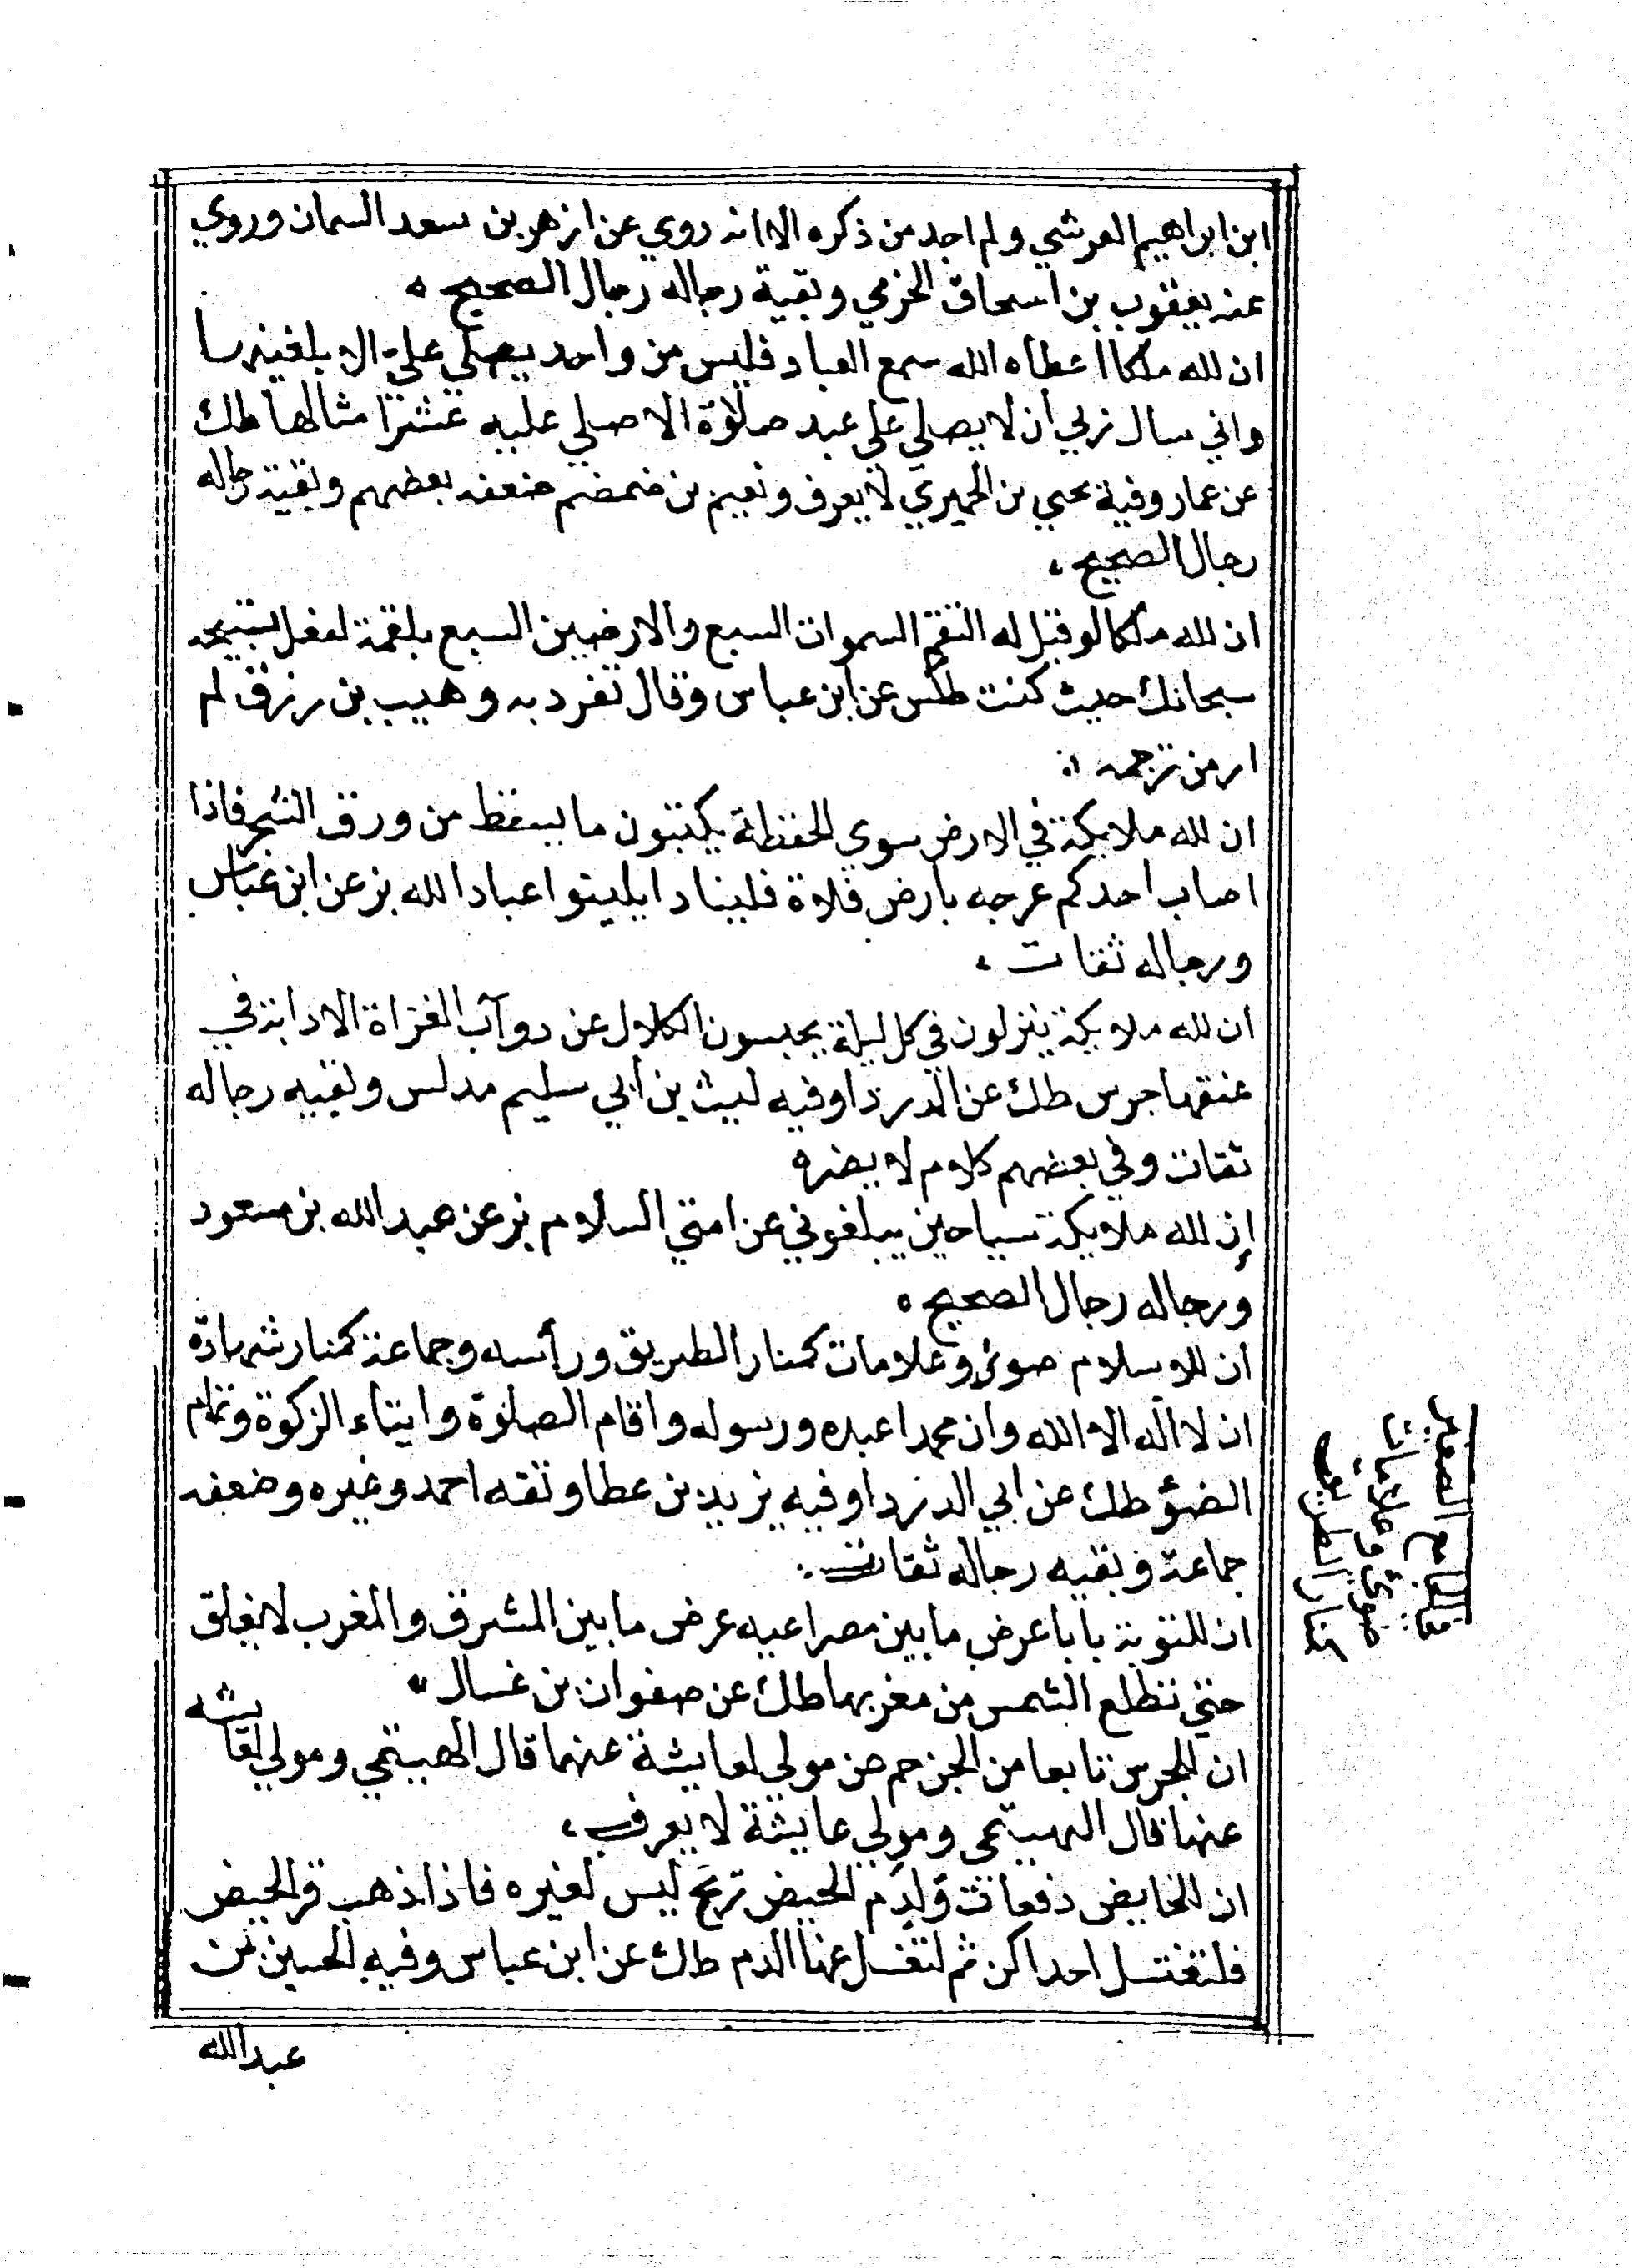 ابن ابراهيم العرشي ولم اجد من ذكره الا انه روي عن ازهر بن سعد السمان وروي
عنه يعقوب بن اسحاق الخرمي وبقية رجاله رجال الصحيح ه
ان لله ملكا اعطاه الله سمع العباد فليس من واحد يصلي علي الا بلغنيها
واني سالت ربي ان لا يصلي علي عبد صلاة الا صلي عليه عشر امثالها طك
عن عمار وفية يحيي بن الحميري لا يعرف ونعيم بن ضمضم ضعفه بعضهم وبقية رجاله
رجال الصحيح ،
ان لله ملكا لو قيل له التقم السموات السبع والارضين السبع بلقمة لفعل تسبيحه
سبحانك حيث كنت طكس عن ابن عباس وقال تفرد به وهيب بن رزق لم
ار من ترجمه
ان لله ملايكة في الارض سوي الحفظة يكتبون ما يسقط من ورق الشجر فاذا
اصاب احدكم عرجه بارض فلاة فلينادا يليتوا عبادا لله بز عن ابن عباس
ورجاله ثقات ،
ان لله ملايكة ينزلون في كل ليلة يحبسون الكلال عن دوآب الغزاة الا دابة في
عنقها جرس طك عن الدرذا وفيه ليث بن ابي سليم مدلس وبقيه رجاله
ثقات وفي بعضهم كلام لا يضره
إن لله ملايكة سياحين يبلغوني عن امتي السلام بز عن عبد الله بن مسعود
ورجاله رجال الصحيح ه
ان للاسلام صوئ وعلامات كمنار الطريق ورأسه وجماعة كمنار شهادة
ان لا اله الا الله وان محمدا عبده ورسوله واقام الصلوة وايتاء الزكوة وتمام
الضؤ طك عن ابي الدرذا وفيه يزيد بن عطا وثقه احمد وغيره وضعفه
جماعة وبقيه رجاله ثقات
ان للتوبة بابا عرض ما بين مصراعيه عرض ما بين المشرق والمغرب لا يغلق
حتي تطلع الشمس من مغربها طك عن صفوان بن غسال
ان للجرس تابعا من الجن حم عن مولي لعايشة عنهما قال الهيتمي ومولي لعايشه
عنها قال الهيتمي ومولي عايشة لا يعرف ،
ان للخايض دفعات ولدم الحيض ريح ليس لغيره فاذا ذهب قر الحيض
فلتغتسل احداكن ثم لتغسل عنها الدم طك عن ابن عباس وفيه الحسين بن
عبد الله
في الجامع الصغير
صوئ وعلامات
كمنار الطريق